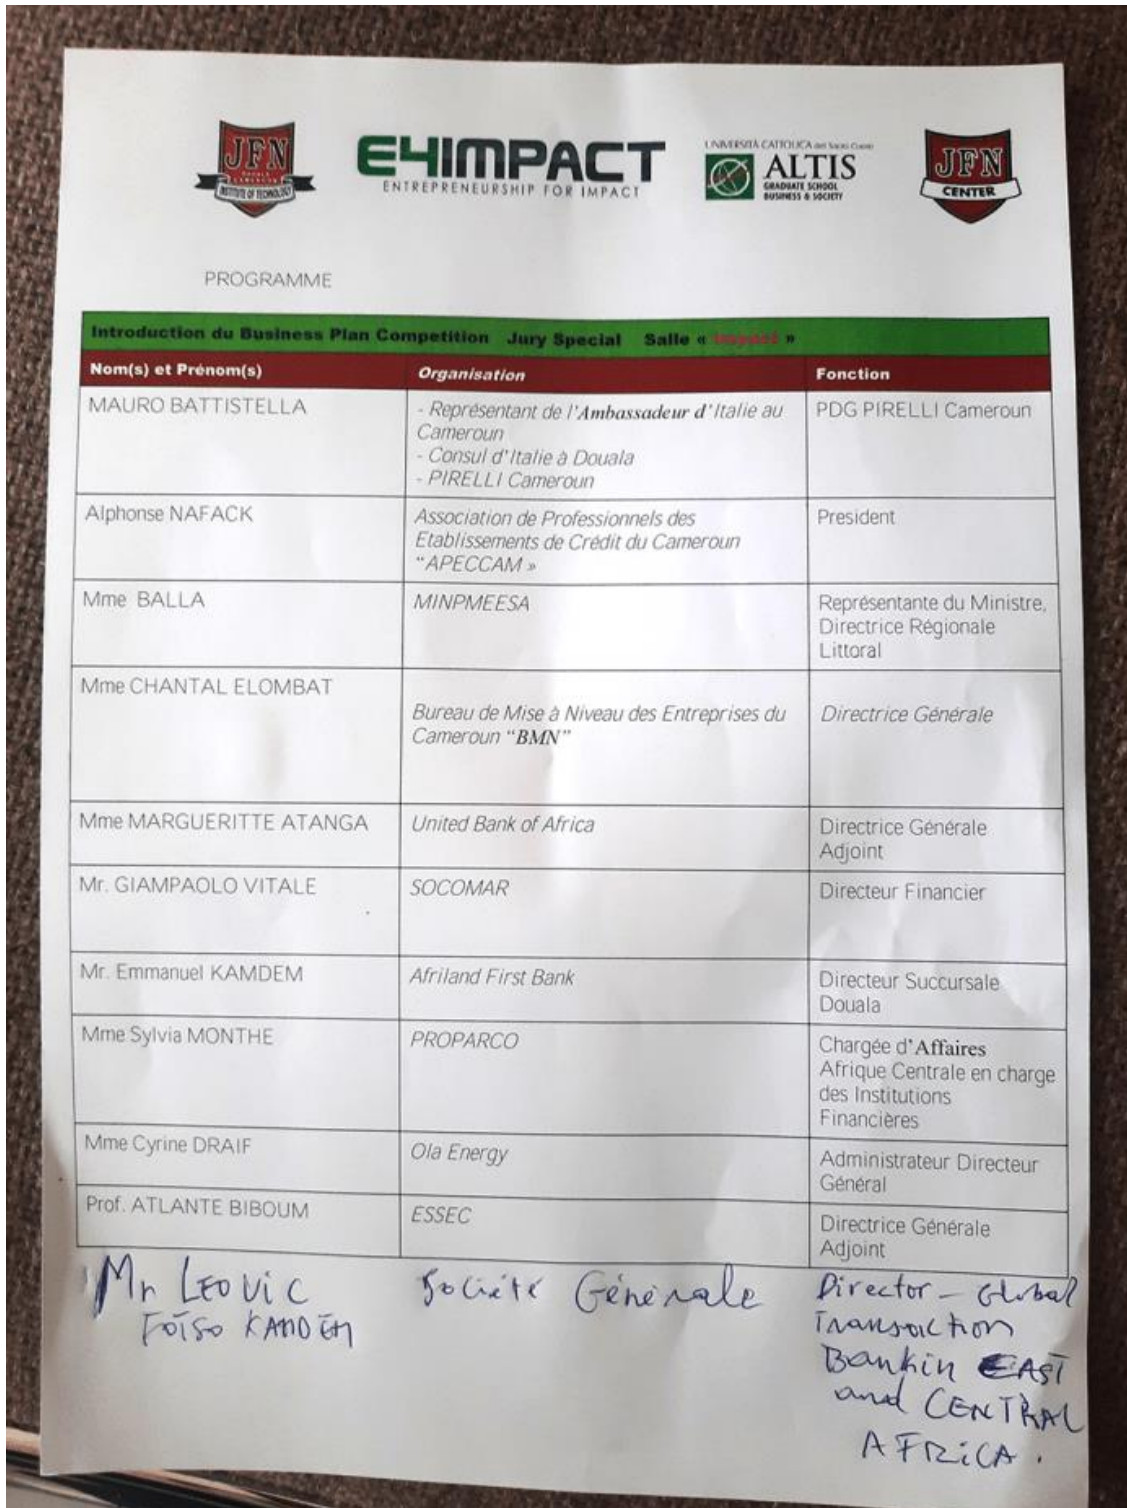 JFN
DOUALA
CAMEROON
INSTITUTE OF TECHNOLOGY
E4IMPACT
ENTREPRENEURSHIP FOR IMPACT
UNIVERSITÀ CATTOLICA del Sacro Cuore
ALTIS
GRADUATE SCHOOL
BUSINESS & SOCIETY
JFN
CENTER
PROGRAMME
Introduction du Business Plan Competition Jury Special Salle « Impact »
Nom(s) et Prénom(s) Organisation Fonction
MAURO BATTISTELLA
- Représentant de l'Ambassadeur d'Italie au
Cameroun
- Consul d'Italie à Douala
- PIRELLI Cameroun
PDG PIRELLI Cameroun
Alphonse NAFACK
Association de Professionnels des
Etablissements de Crédit du Cameroun
“APECCAM »
President
Mme BALLA
MINPMEESA
Représentante du Ministre,
Directrice Régionale
Littoral
Mme CHANTAL ELOMBAT
Bureau de Mise à Niveau des Entreprises du
Cameroun “BMN”
Directrice Générale
Mme MARGUERITTE ATANGA
United Bank of Africa
Directrice Générale
Adjoint
Mr. GIAMPAOLO VITALE
SOCOMAR
Directeur Financier
Mr. Emmanuel KAMDEM
Afriland First Bank
Directeur Succursale
Douala
Mme Sylvia MONTHE
PROPARCO
Chargée d'Affaires
Afrique Centrale en charge
des Institutions
Financières
Mme Cyrine DRAIF
Ola Energy
Administrateur Directeur
Général
Prof. ATLANTE BIBOUM
ESSEC
Directrice Générale
Adjoint
Mr LEOVIC
FOTSO KAMDEM
Société Générale
Director - Global
Transaction
Bankin EAST
and CENTRAL
AFRICA.